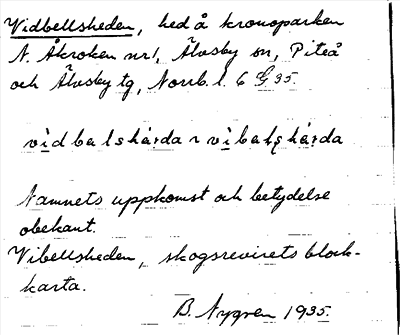 Vidbellsheden, hed å kronoparken
N. Åkroken nr 1, Älvsby sn, Piteå
och Älvsby tg, Norrb. l. 6 G 35.
vìdbalshárda ~ vìbalshárda
Namnets uppkomst och betydelse
obekant.
Vibellsheden, skogsrevirets block-
karta.
B. Nygren 1935.